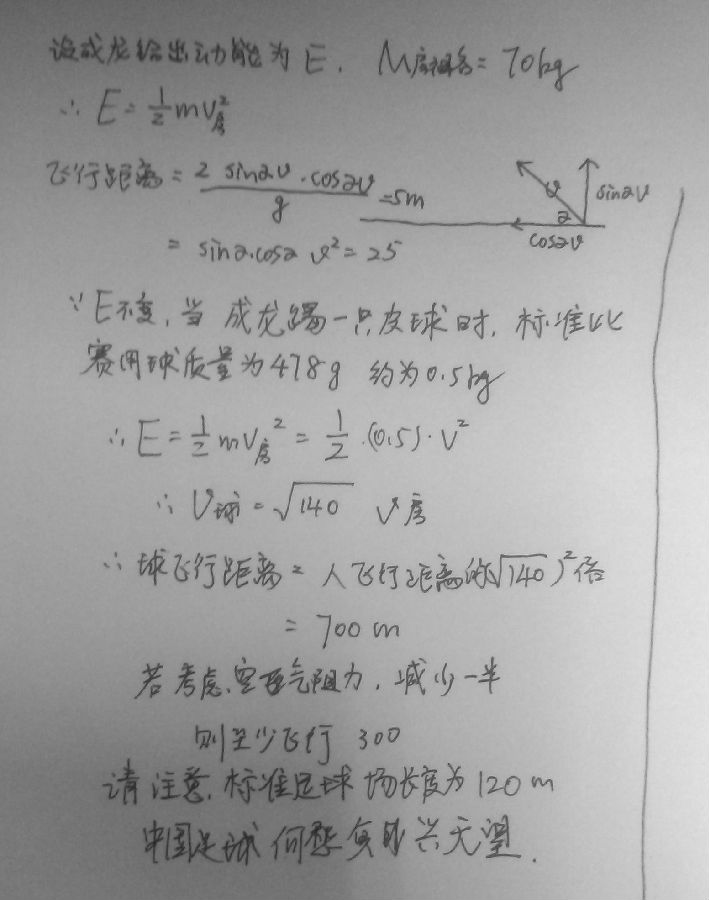 设成龙给出动能为 E. M房祖名=70kg
∴ E=½mV房²
飞行距离 = 2 sin∂v·cos∂v / g =5m
= sin∂.cos∂ v²=25
v ∂ sin∂v cos∂v
∵E不变, 当成龙踢一只皮球时, 标准比
赛用球质量为478g 约为0.5kg
∴ E=½mV房²=½·(0.5)·V²
∴ V球=√140 V房
∴ 球飞行距离= 人飞行距离的(√140)²倍
= 700m
若考虑空气阻力, 减少一半
则至少飞行 300
请注意, 标准足球场长度为120m
中国足球何愁复兴无望.